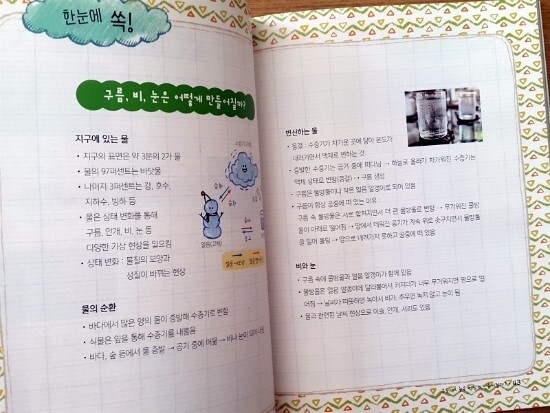 한눈에 쏙!
구름, 비, 눈은 어떻게 만들어질까?
지구에 있는 물
• 지구의 표면은 약 3분의 2가 물
• 물의 97퍼센트는 바닷물
• 나머지 3퍼센트는 강, 호수,
지하수, 빙하 등
• 물은 상태 변화를 통해
구름, 안개, 비, 눈 등
다양한 기상 현상을 일으킴
• 상태 변화 : 물질의 모양과
성질이 바뀌는 현상
얼음(고체)
물의 순환
• 바다에서 많은 양의 물이 증발해 수증기로 변함
• 식물은 잎을 통해 수증기를 내뿜음
• 바다, 숲 등에서 물 증발 → 공기 중에 머묾 → 비나 눈이 되어
변신하는 물
• 응결 : 수증기가 차가운 곳에 닿아 온도가
내려가면서 액체로 변하는 것
• 증발한 수증기는 공기 중에 떠다님 → 하늘로 올라가 차가워진 수증기는
액체 상태로 변함(응결) → 구름 생성
• 구름은 물방울이나 작은 얼음 알갱이로 되어 있음
• 구름이 항상 공중에 떠 있는 이유
구름 속 물방울은 서로 합쳐지면서 더 큰 물방울로 변함 → 무거워진 물방
울이 아래로 떨어짐 → 땅에서 데워진 공기가 자꾸 위로 솟구치면서 물방울
을 밀어 올림 → 땅으로 내려가지 못하고 공중에 떠 있음
비와 눈
• 구름 속에 물방울과 얼음 알갱이가 함께 있음
• 물방울은 얼음 알갱이에 달라붙어서 커지다가 너무 무거워지면 땅으로 떨
어짐 → 날씨가 따뜻하면 녹아서 비가, 추우면 녹지 않고 눈이 됨
• 물과 관련한 날씨 현상으로 이슬, 안개, 서리도 있음
43